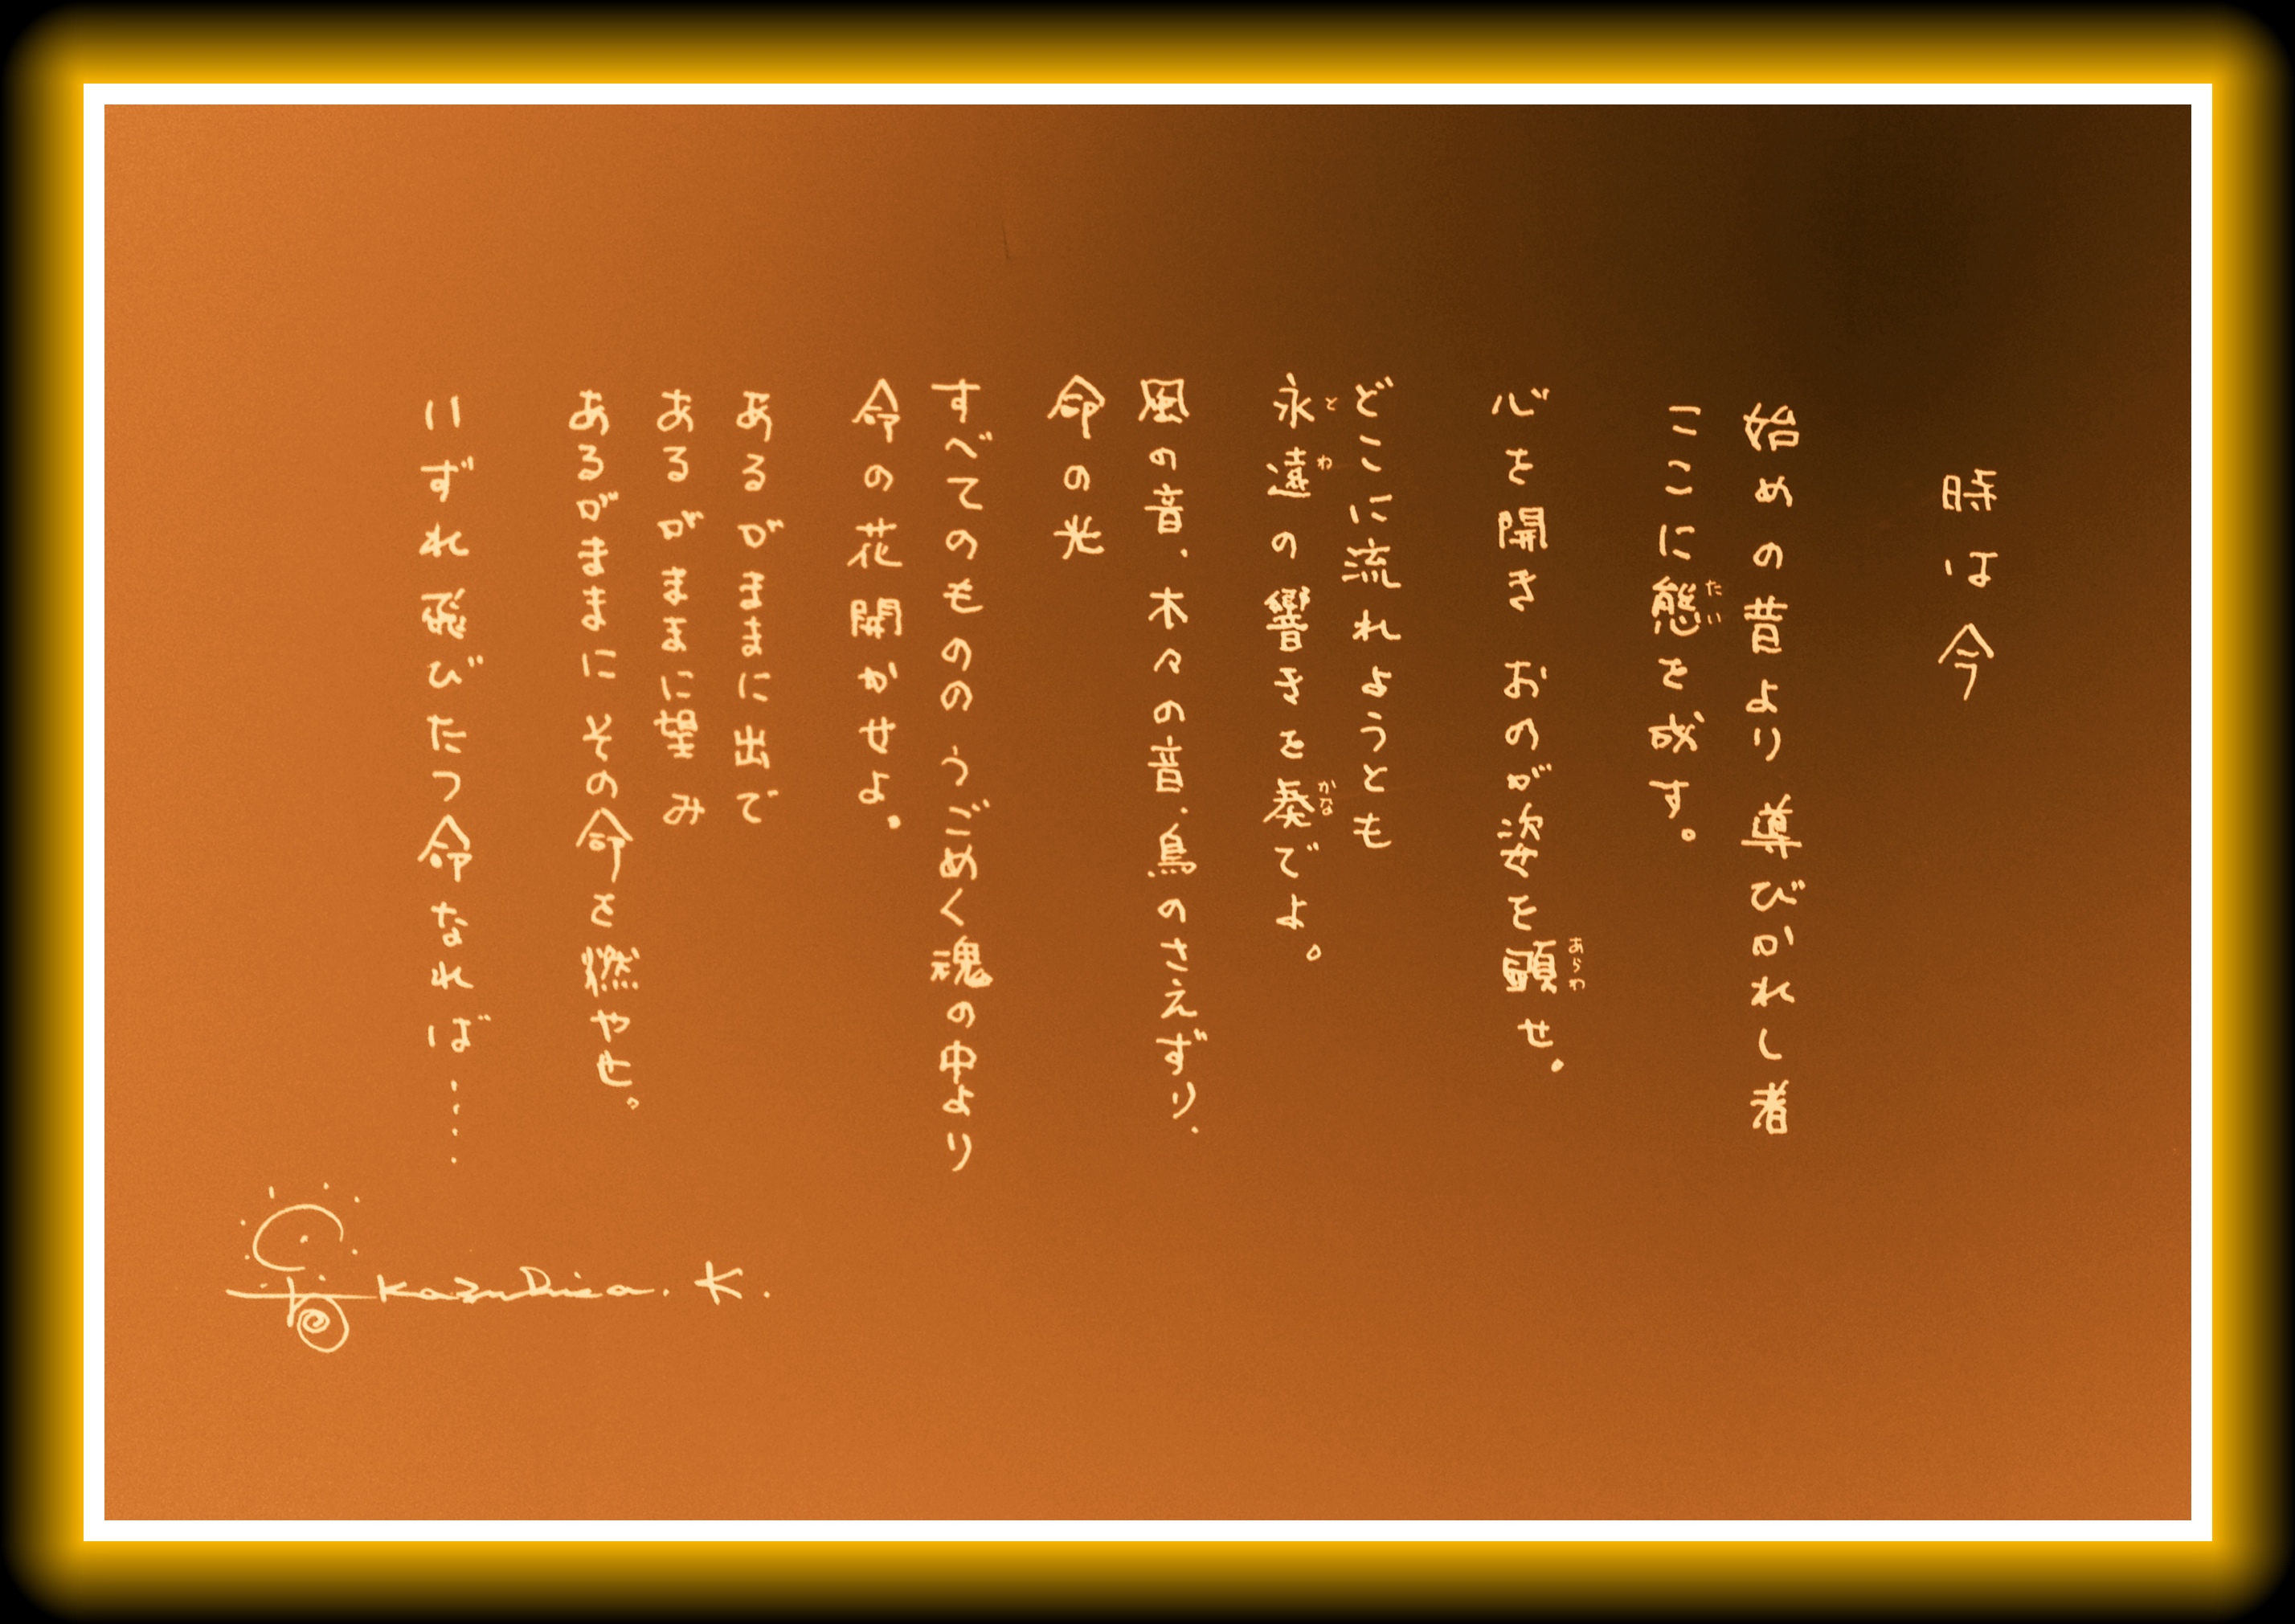 時は今
始めの昔より 導びかれし者
ここに態を成す。
たい
心を開き おのが姿を顕せ。
あらわ
どこに流れようとも
永遠の響きを奏でよ。
とわ
かな
風の音、木々の音、鳥のさえずり、
命の光
すべてのものの うごめく魂の中より
命の花開かせよ。
あるがままに出で
あるがままに望み
あるがままに その命を燃やせ。
いずれ飛びたつ命なれば……
Kazuhisa. K.